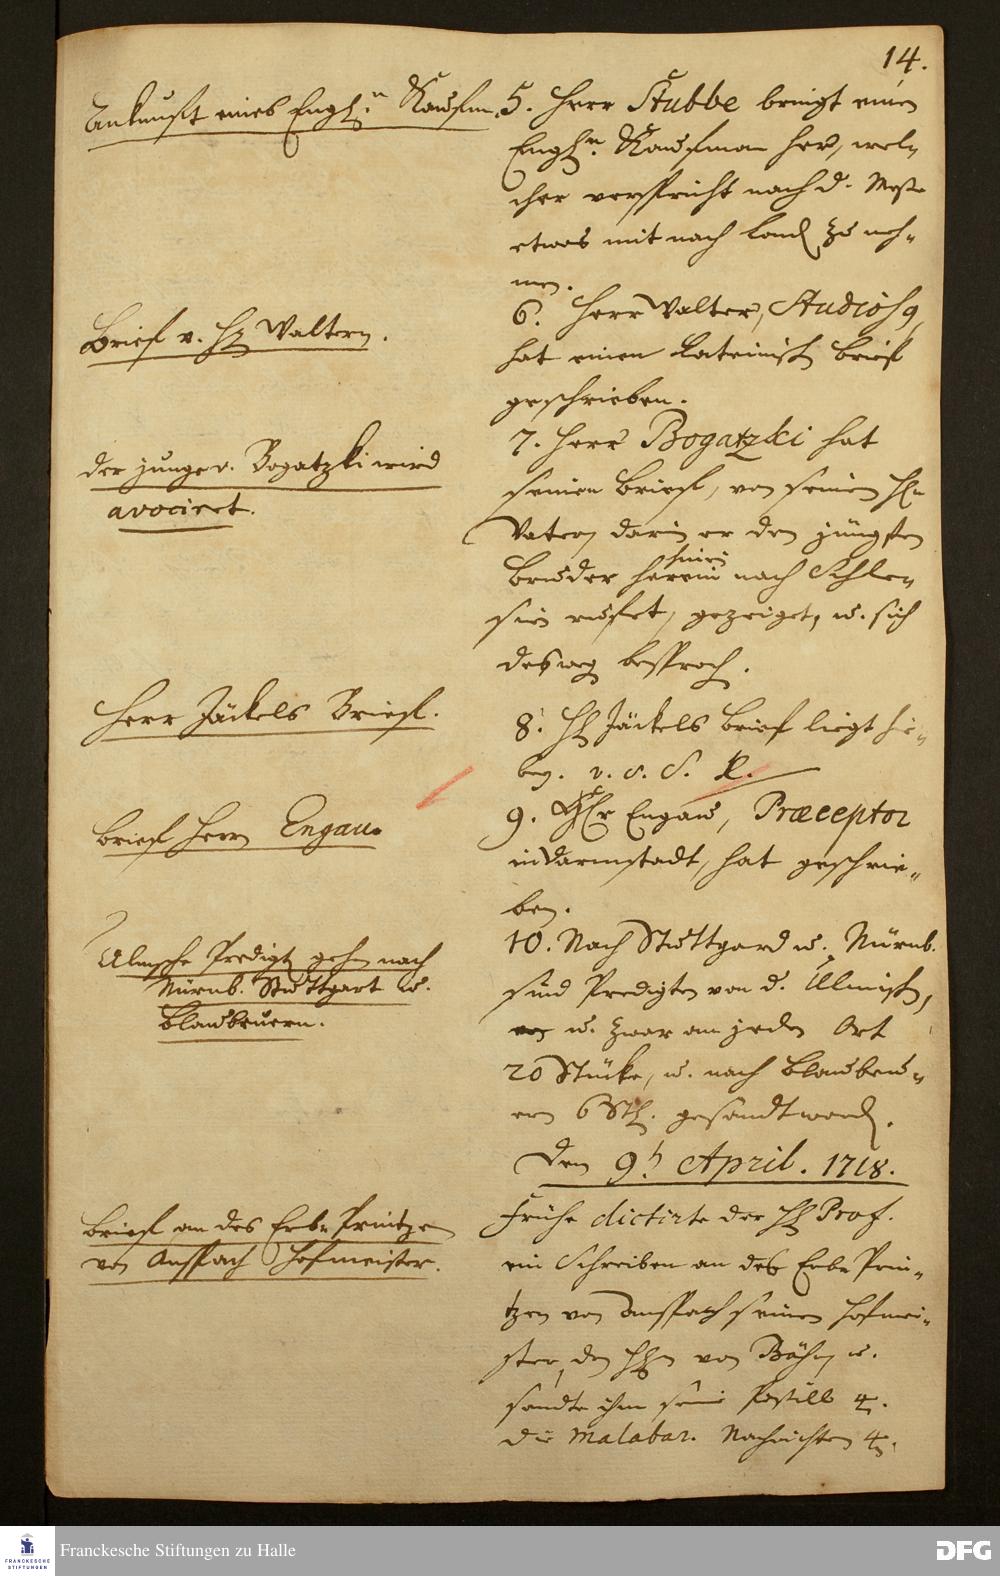 14.
Ankunft eines Engl.n Kaufm.
5. Herr Stubbe bringt einen
Engl.n Kaufman her, wel-
cher verspricht nach d. Messe
etwas mit nach Lond. zu neh-
men.
Brief v. H. Waltern.
6. Herr Walter, Studiosg
hat einen Lateinisch Brief
geschrieben.
der junge v. Bogatzki wird
avociret.
7. Herr Bogatzki hat
seinen Brief, von seinem H.
Vater, darin er den jüngsten
Bruder herein nach Schle-
sien rufet, gezeiget, u. sich
desweg besproch.
Herr Jäckels Brief.
8. H. Jäckels Brief liegt hie-
bey. v. s. S.
Brief Herrn Engau.
9. Hr Engau, Præceptor
in Darmstadt, hat geschrie-
ben.
Ulmsche Predigt gehn nach
Nürnb. Stuttgart u.
Blaubeuern.
10. Nach Stuttgard u. Nürnb.
sind Predigten von d. Ulmisch,
u. zwar an jeden Ort
20 Stücke, u. nach Blaubeu-
ern 6 Stk. gesandt word.
Den 9t April. 1718.
Brief an des Erb-Printzen
von Anspach Hofmeister.
Frühe dictirte der H. Prof.
ein Schreiben an des Erb-Prin-
tzen von Anspach seinen Hofmei-
ster, den H. von Bähr, u.
sandte ihm seine Postill 4.
die Malabar. Nachrichten 4.
FRANCKESCHE STIFTUNGEN
Franckesche Stiftungen zu Halle
DFG